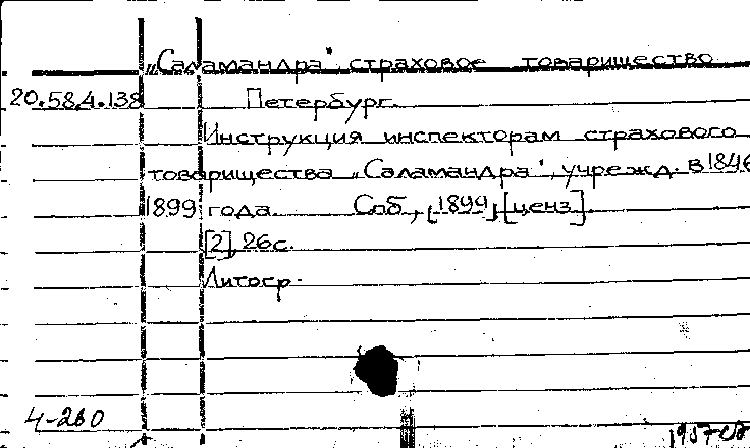 „Саламандра", страховое товарищество
20.58.4.138 Петербург.
Инструкция инспекторам страхового
товарищества „Саламандра", учрежд. в 1846
1899 года. Спб., [1899], [ценз].
[2], 26с.
Литогр.
4-260